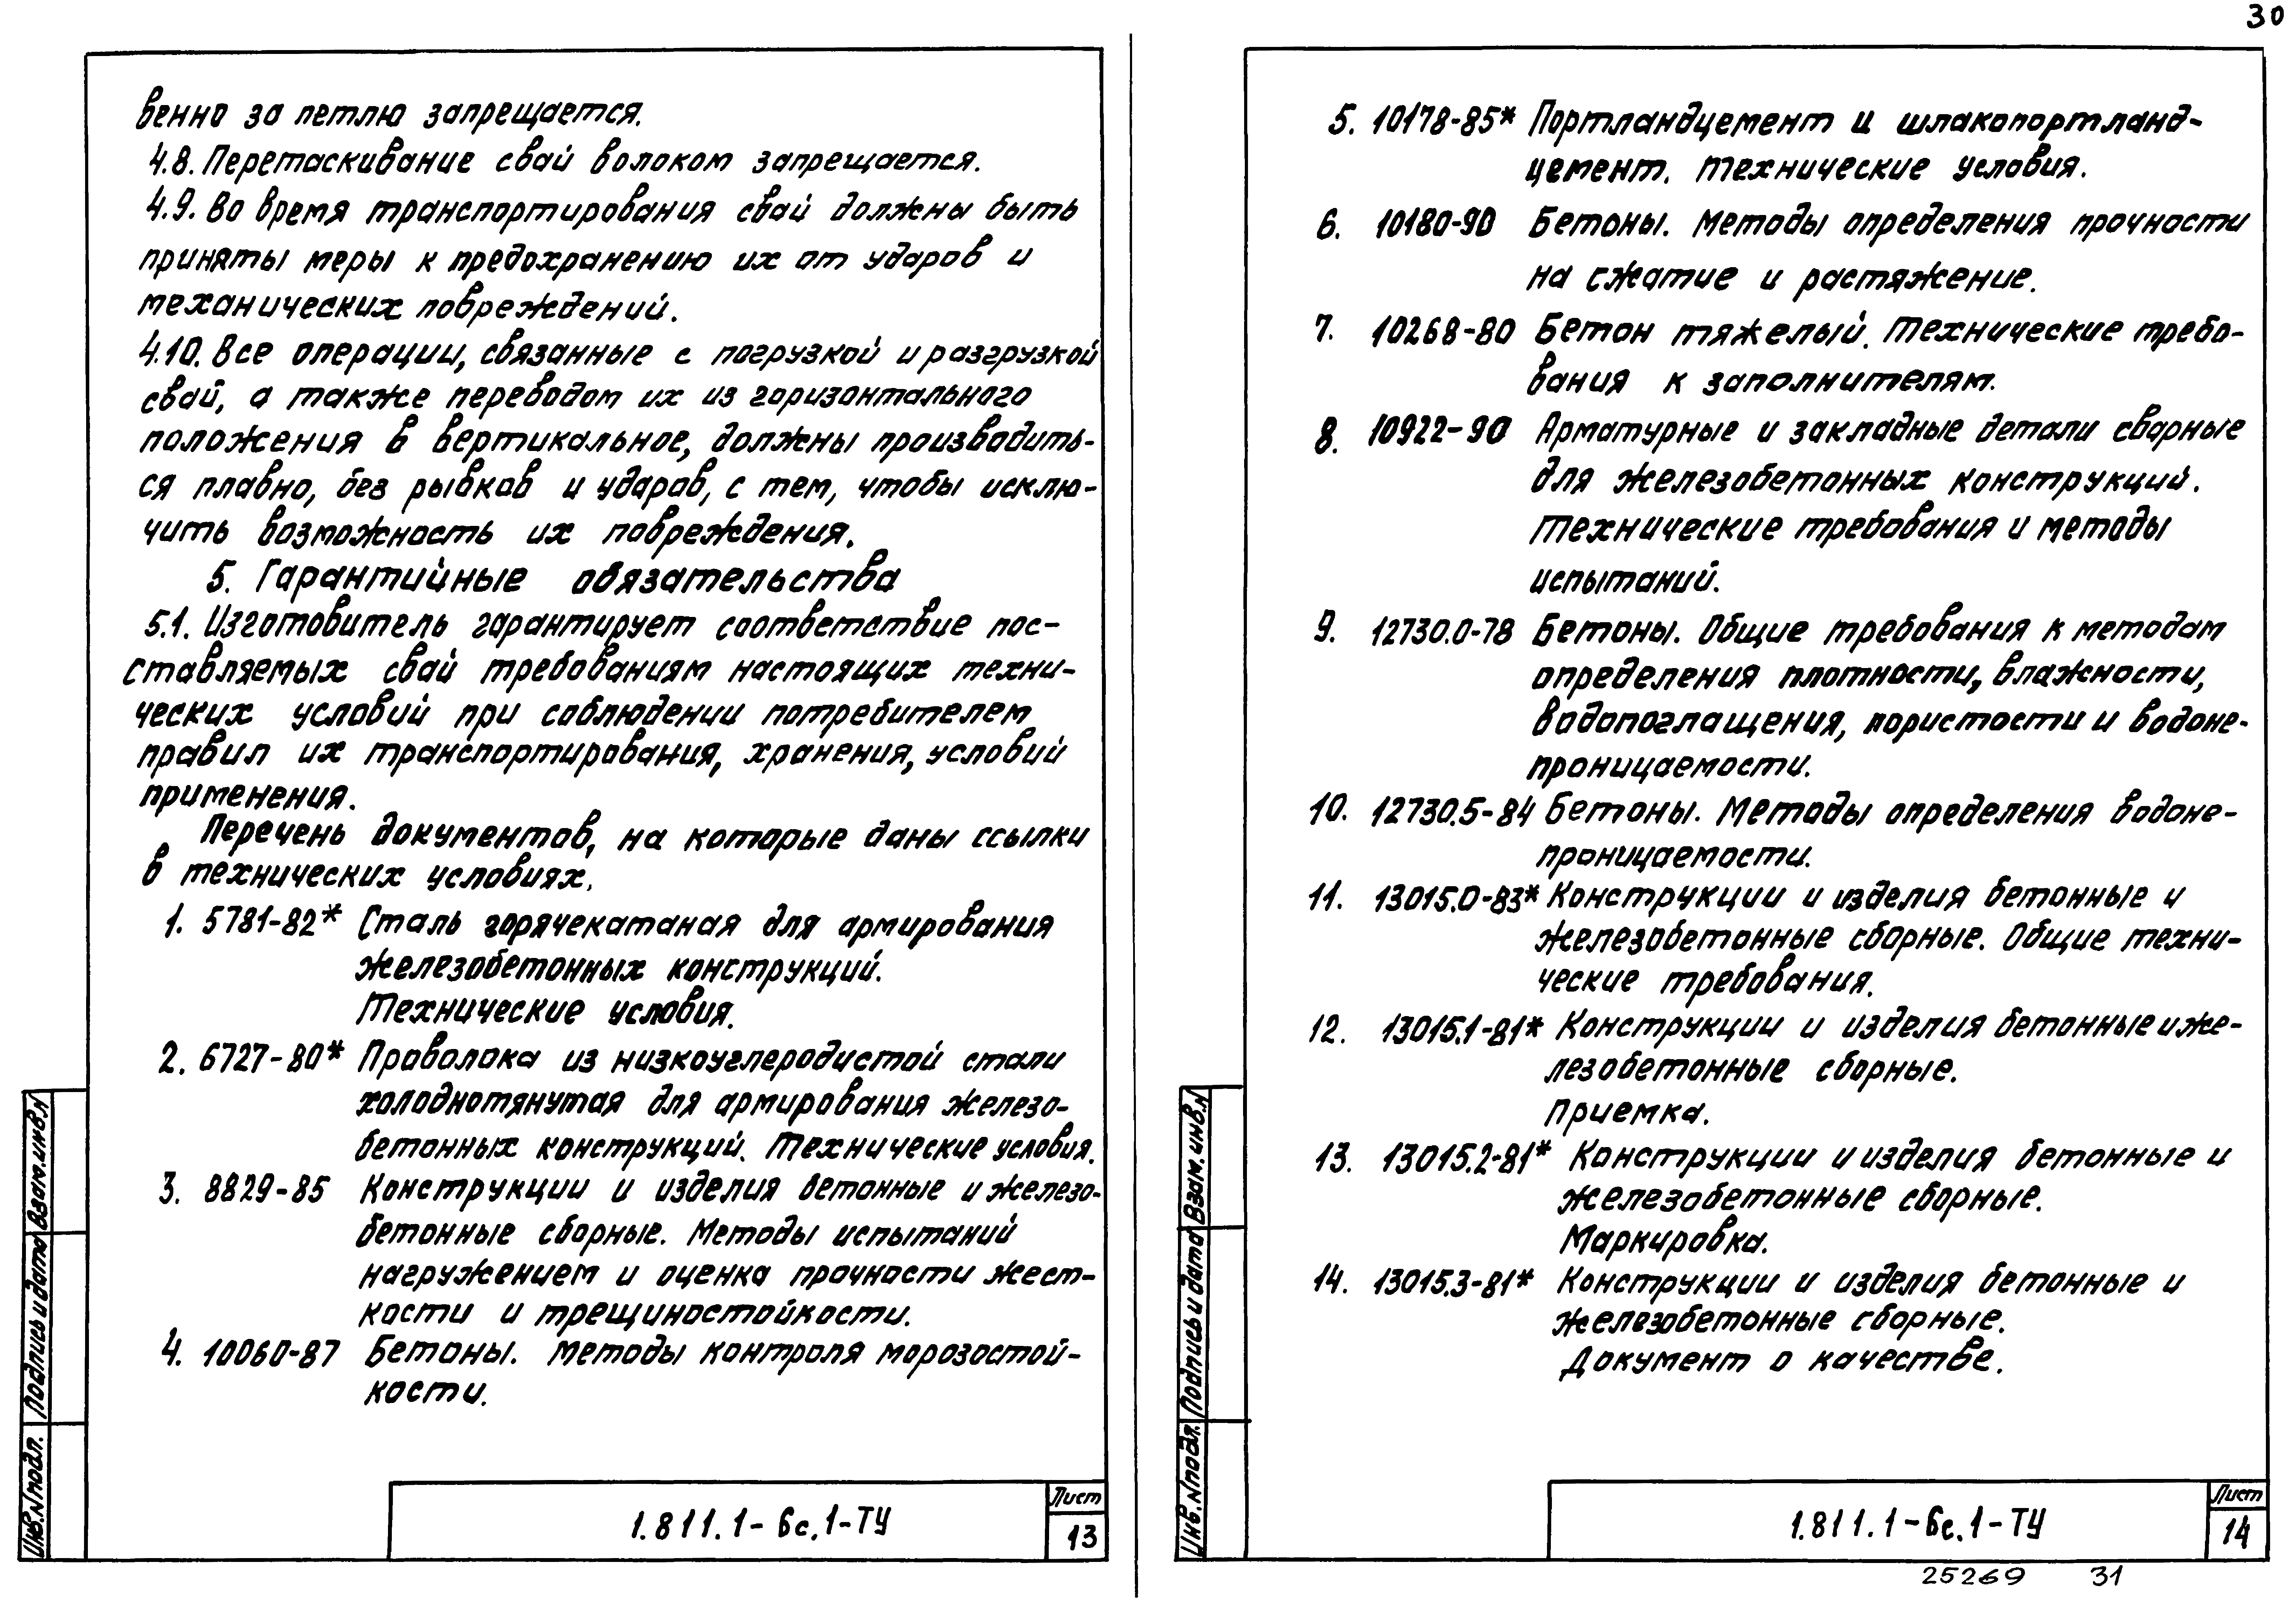 30
венно за петлю запрещается.
4.8. Перетаскивание свай волоком запрещается.
4.9. Во время транспортирования свай должны быть
приняты меры к предохранению их от ударов и
механических повреждений.
4.10. Все операции, связанные с погрузкой и разгрузкой
свай, а также переводом их из горизонтального
положения в вертикальное, должны производить-
ся плавно, без рывков и ударов, с тем, чтобы исклю-
чить возможность их повреждения.
5. Гарантийные обязательства
5.1. Изготовитель гарантирует соответствие пос-
ставляемых свай требованиям настоящих техни-
ческих условий при соблюдении потребителем
правил их транспортирования, хранения, условий
применения.
Перечень документов, на которые даны ссылки
в технических условиях.
1. 5781-82* Сталь горячекатаная для армирования
железобетонных конструкций.
Технические условия.
2. 6727-80* Проволока из низкоуглеродистой стали
холоднотянутая для армирования железо-
бетонных конструкций. Технические условия.
3. 8829-85 Конструкции и изделия бетонные и железо-
бетонные сборные. Методы испытаний
нагружением и оценка прочности жест-
кости и трещиностойкости.
4. 10060-87 Бетоны. Методы контроля морозостой-
кости.
Инв.N подл. Подпись и дата Взам.инв.N
1.811.1-6с.1-ТУ
Лист
13
5. 10178-85* Портландцемент и шлакопортланд-
цемент. Технические условия.
6. 10180-90 Бетоны. Методы определения прочности
на сжатие и растяжение.
7. 10268-80 Бетон тяжелый. Технические требо-
вания к заполнителям.
8. 10922-90 Арматурные и закладные детали сварные
для железобетонных конструкций.
Технические требования и методы
испытаний.
9. 12730.0-78 Бетоны. Общие требования к методам
определения плотности, влажности,
водопоглащения, пористости и водоне-
проницаемости.
10. 12730.5-84 Бетоны. Методы определения водоне-
проницаемости.
11. 13015.0-83* Конструкции и изделия бетонные и
железобетонные сборные. Общие техни-
ческие требования.
12. 13015.1-81* Конструкции и изделия бетонные и же-
лезобетонные сборные.
Приемка.
13. 13015.2-81* Конструкции и изделия бетонные и
железобетонные сборные.
Маркировка.
14. 13015.3-81* Конструкции и изделия бетонные и
железобетонные сборные.
Документ о качестве.
Инв.N подл. Подпись и дата Взам.инв.N
1.811.1-6с.1-ТУ
Лист
14
25269 31